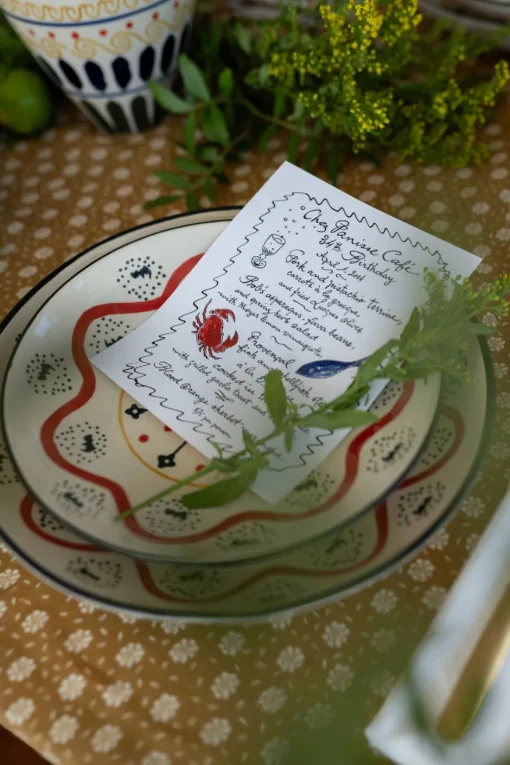 Chez Panisse Café
34th Birthday
April 1, 2014
Pork and pistachio terrine,
carrots à la grecque,
and fried Lucques olives
Bob's asparagus, fava beans,
and spring herb salad
with Meyer lemon vinaigrette
Provençal
fish and shellfish
cooked in the
with grilled garlic toast and
Blood orange sherbet